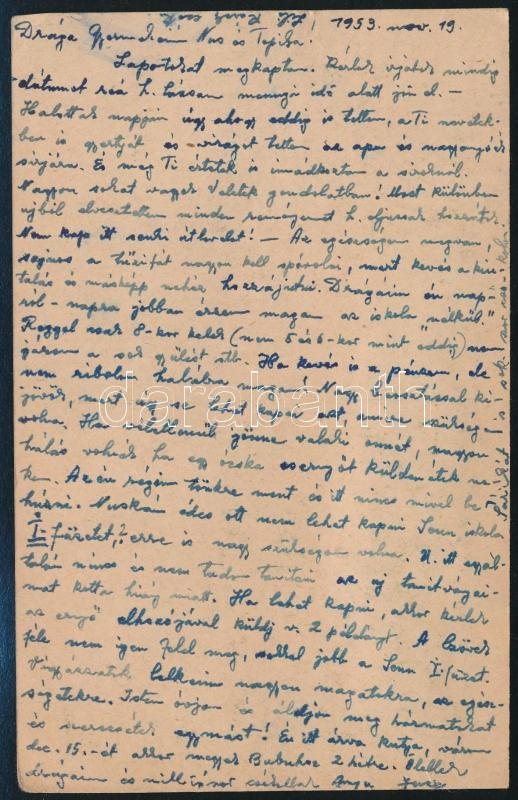 1953. nov. 19.
Drága Gyermekeim Nus és Tapika!
Lapotokat megkaptam. Kérlek írjátok mindig
dátumot reá h. lássam mennyi idő alatt jön el. –
Halottak napján úgy ahogy eddig is tettem, a Ti nevetek-
ben is gyertyát és virágot tettem az apu és nagyanyóék
sírjára. És meg Ti értetek is imádkoztam a síroknál.
Nagyon sokat vagyok Veletek gondolatban! Most különben
újból elvesztettem minden reményemet h. eljussak hozzátok.
Nem kap itt senki útlevelet! – Az egészségem megvan,
sajnos a tűzifát nagyon kell spórolni, mert kevés a kiu-
talás és másképp nehéz hozzájutni. Drágáim én nap-
ról-napra jobban érzem magam az iskola nélkül."
Reggel csak 8-kor kelek (nem 5 és 6-kor mint eddig) nem
járom a sok gyűlést stb. Ha kevés is a pénzem, de
nem robotolom halálra magam! Nagy beosztással ki-
jövök, mert úgy se lehet kapni azt amire szükségem
volna. Ha véletlenül jönne valaki onnét, nagyon
hálás volnék ha egy ócska esernyőt küldenétek ne-
kem. Az én régim tönkre ment és itt nincs mivel be-
húzni. Nuskám édes ott nem lehet kapni Senn iskola
I-III füzetet, erre is nagy szükségem volna. U. itt egyál-
talán nincs és nem tudom tanítani az új tanítványai-
mat kotta híány miatt. Ha lehet kapni, akkor kérlek
az ernyő elhozójával küldj v. 2 példányt. A
féle nem igen felel meg, sokkal jobb a Senn I. füzet.
Vigyázzatok lelkeim nagyon magatokra, az egész-
ségetekre. Isten óvjon és áldjon meg hármatokat
és szeressétek egymást! Én itt árva kutya, várom
dec. 15.-ét akkor megyek Babuhoz 2 hétre. Ölellek
drágáim és milliószor csókollak Anyu
darabanth